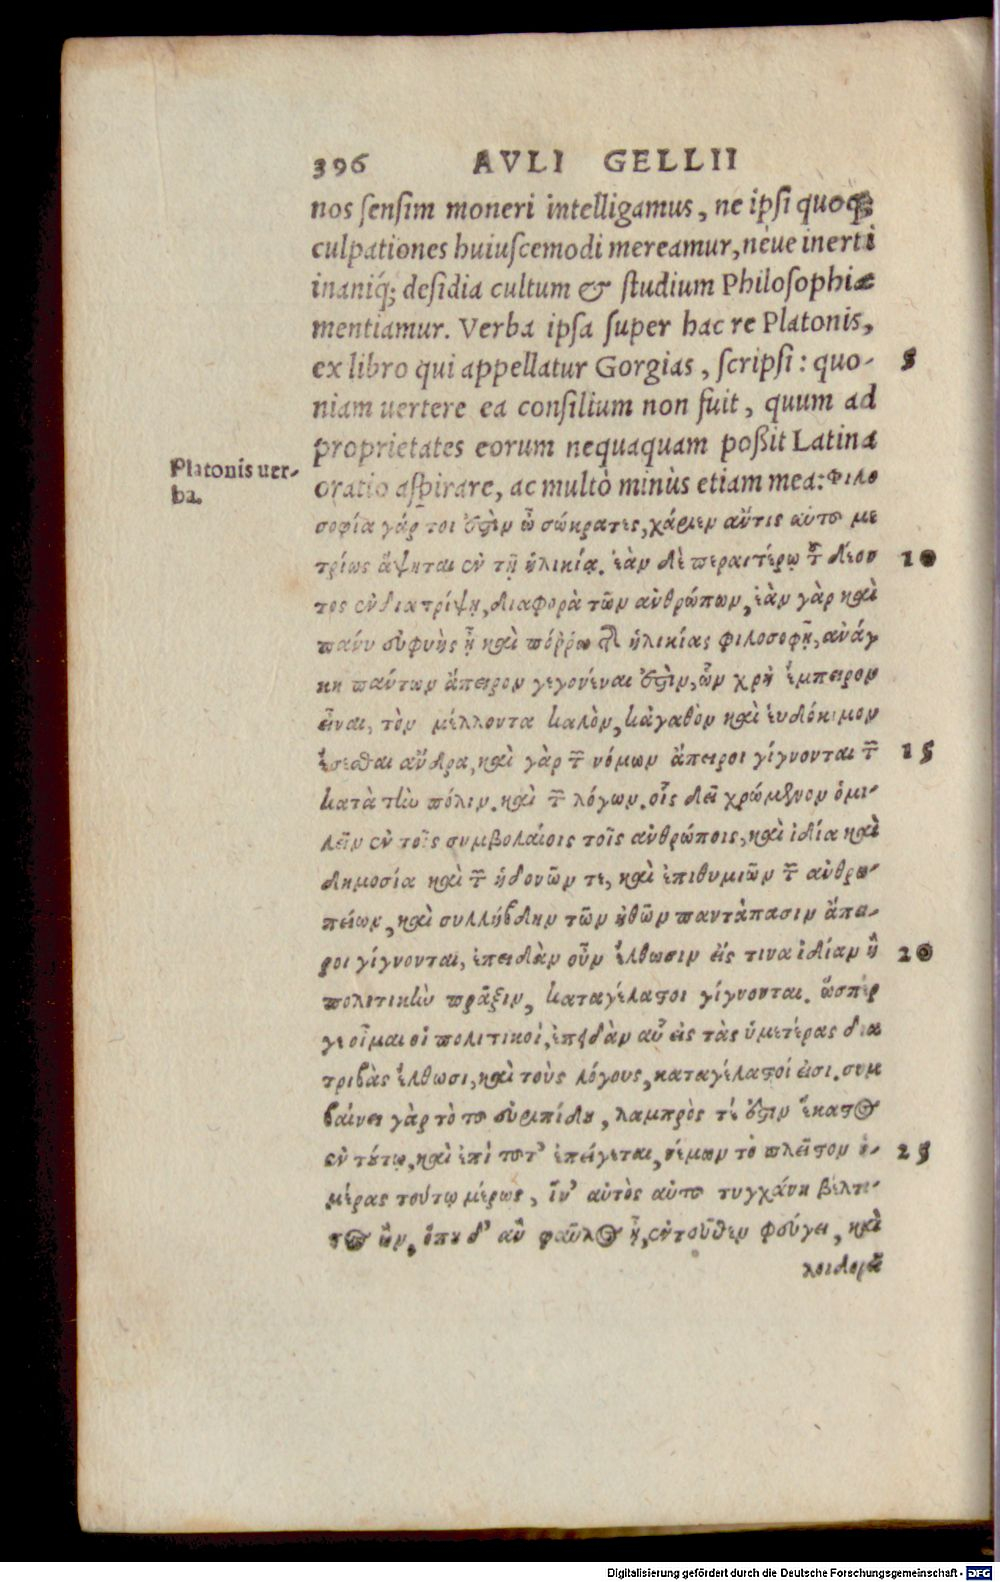 396 AVLI GELLII
nos sensim moneri intelligamus, ne ipsi quoq;
culpationes huiuscemodi mereamur, néue inerti
inaniq́; desidia cultum & studium Philosophiæ
mentiamur. Verba ipsa super hac re Platonis,
ex libro qui appellatur Gorgias, scripsi: quo- 5
niam uertere ea consilium non fuit, quum ad
proprietates eorum nequaquam poßit Latina
Platonis uer-
ba.
oratio aspirare, ac multò minùs etiam mea: Φιλο
σοφία γάρ τοι ὅϛὶν ὦ σώκρατες, χάριεν ἄν τις αὐτο με
τρίως ἅψηται ἐν τῇ ἡλικίᾳ. ἐὰν δὲ περαιτέρω τ͂ δέον 10
τος ἐνδιατρίψῃ, διαφορὰ τῶν ἀνθρώπων, ἐὰν γὰρ καὶ
πάνυ εὐφυὴς ᾖ καὶ πόῤῥω τῆς ἡλικίας φιλοσοφῇ, ἀνάγ
κη πάντων ἄπειρον γεγονέναι ὅϛὶν, ὧν χρὴ ἔμπειρον
εἶναι, τὸν μέλλοντα καλὸν, κἀγαθὸν καὶ ἐυδόκιμον
ἔσεσθαι ἄνδρα, καὶ γὰρ τ͂ νόμων ἄπειροι γίγνονται τ͂ 15
κατὰ τὴν πόλιν. καὶ τ͂ λόγων. οἷς δεῖ χρώμενον ὁμι-
λεῖν ἐν τοῖς συμβολαίοις τοῖς ἀνθρώποις, καὶ ἰδία καὶ
δημοσία καὶ τ͂ ἡδονῶν τε, καὶ ἐπιθυμιῶν τ͂ ἀνθρω-
πείων, καὶ συλλήβδην τῶν ἠθῶν παντάπασιν ἄπει-
ροι γίγνονται, ἐπειδὰν οὖν ἔλθωσιν εἴς τινα ἰδίαν ἢ 20
πολιτικὴν πρᾶξιν, καταγέλαϛοι γίγνονται. ὥσπερ
γε οἶμαι οἱ πολιτικοί, ἐπειδὰν αὖ εἰς τὰς ὑμετέρας δια
τριβὰς ἔλθωσι, καὶ τοὺς λόγους, καταγέλαϛοί εἰσι. συμ
βαίνει γὰρ τὸ το εὐριπίδου, λαμπρὸς τέ ὅϛιν ἕκαϛος
ἐν τούτῳ, καὶ ἐπὶ τοτ' ἐπείγεται, νέμων τὸ πλεῖϛον ἡ- 25
μέρας τούτῳ μέρως, ἵν' αὐτὸς αὐτο τυγχάνη βέλτι-
ϛος ὤν, ὅπου δ' ἂν φαῦλος ᾖ, ἐντοῦθεν φεύγει, καὶ
λοιδορεῖ
Digitalisierung gefördert durch die Deutsche Forschungsgemeinschaft - DFG